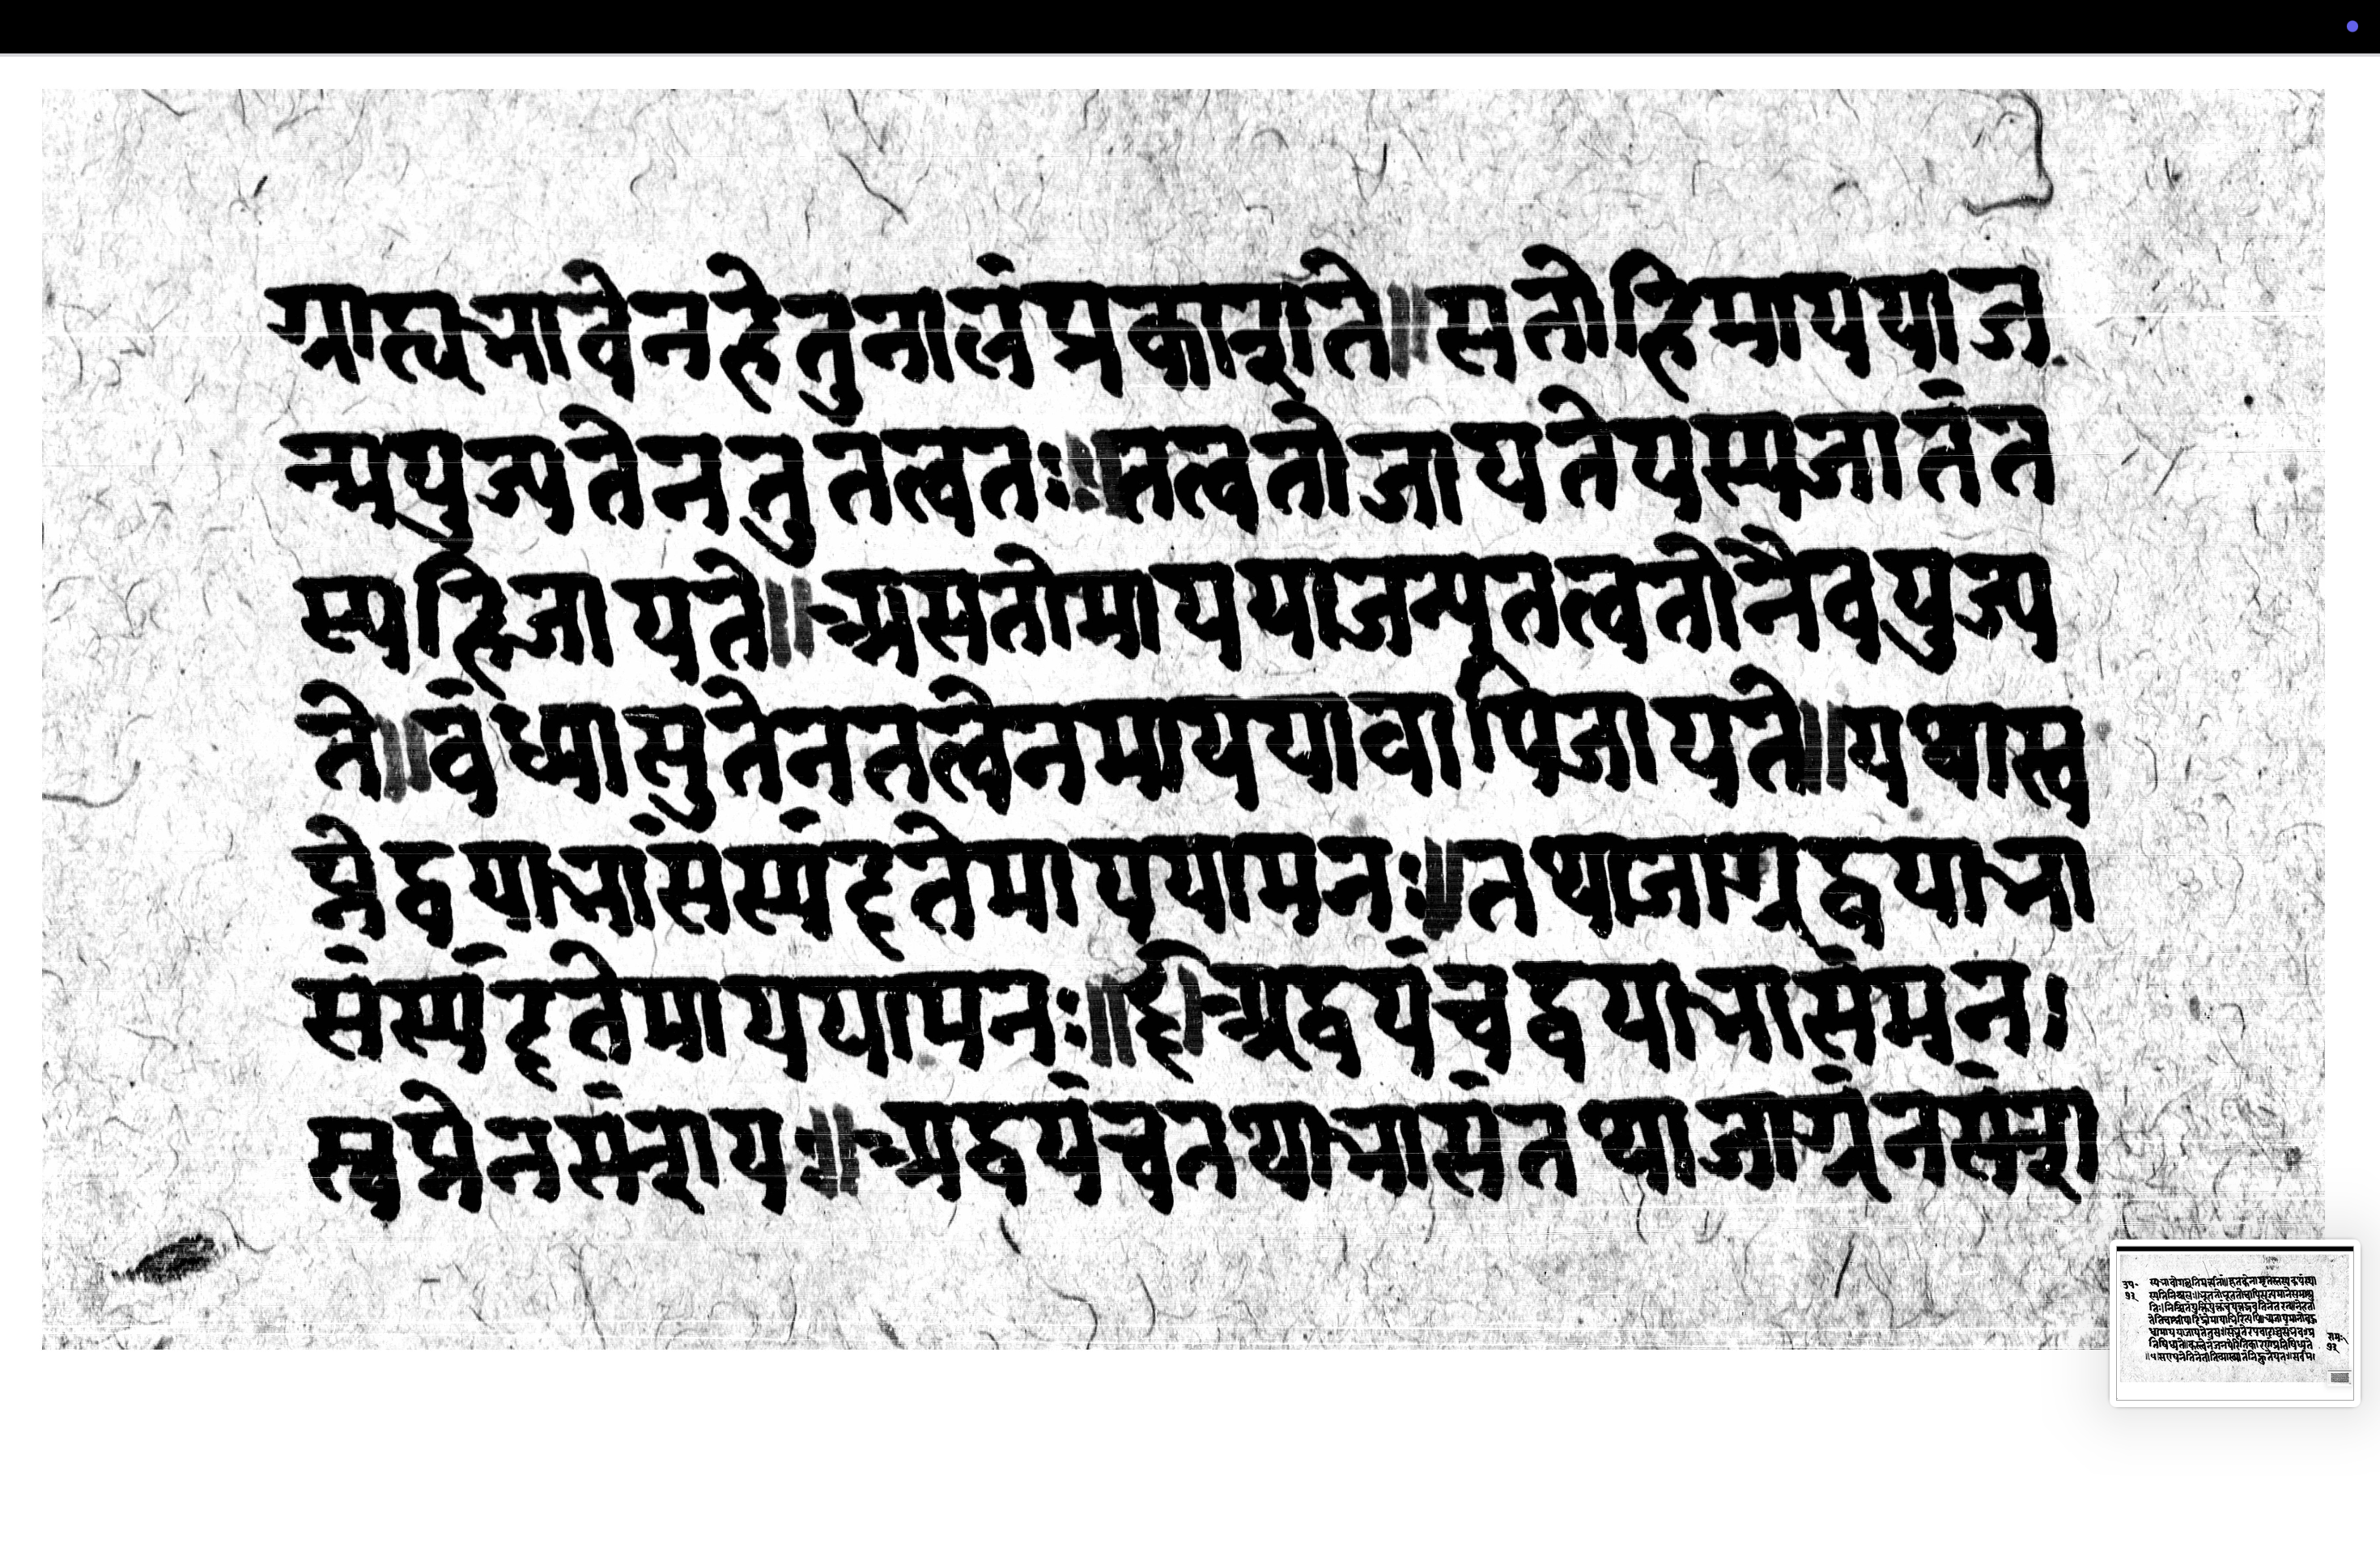 ग्राह्यभावेन हेतुनालंप्रकाशते॥सतोहिमाययाज
न्मयुज्यतेनतुतत्वतः॥तत्वतोजायतेयस्यजातंत
स्यहिजायते॥असतोमाययाजन्मतत्वतोनैवयुज्य
ते॥वंध्यासुतेनतत्वेनमाययावापिजायते॥यथास्व
प्नेद्वयाभासंस्पंदतेमाययामनः॥तथाजाग्रद्वयाभा
संस्पंदतेमाययामनः॥ही अद्वयंचद्वयाभासंमनः
स्वप्नेनसंशयः॥अद्वयंचतथाभासंतथाजाग्रंनसंशा